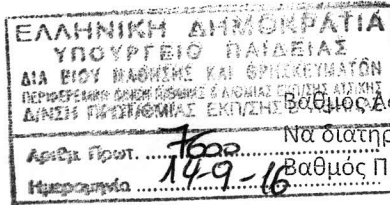 ΕΛΛΗΝΙΚΗ ΔΗΜΟΚΡΑΤΙΑ
ΥΠΟΥΡΓΕΙΟ ΠΑΙΔΕΙΑΣ
ΔΙΑ ΒΙΟΥ ΜΑΘΗΣΗΣ ΚΑΙ ΘΡΗΣΚΕΥΜΑΤΩΝ
Δ/ΝΣΗ ΕΚΠ/ΣΗΣ
Βαθμός
Να διατηρ
Αριθμ. Πρωτ. 7600
Βαθμός Π
Ημερομηνία 14-9-16